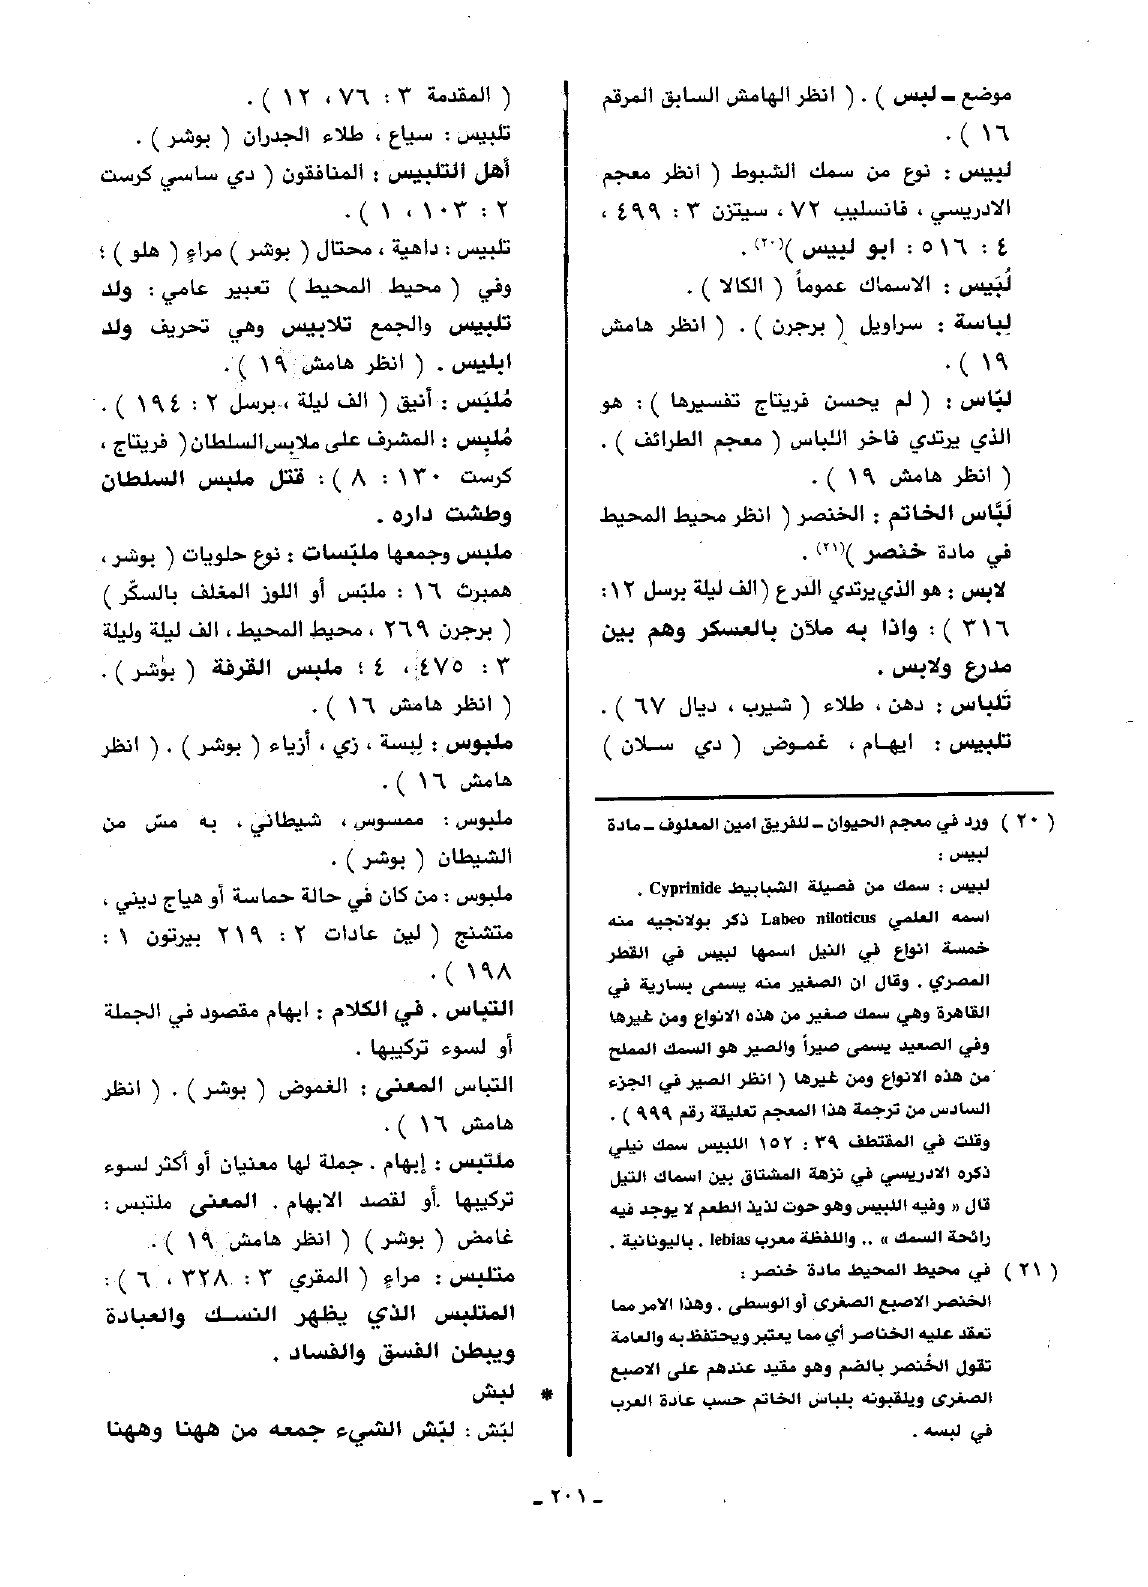 موضع ـ لبس ) . ( انظر الهامش السابق المرقم
١٦ ) .
لبيس : نوع من سمك الشبوط ( انظر معجم
الادريسي ، فانسليب ٧٢ ، سيتزن ٣ : ٤٩٩ ،
٤ : ٥١٦ : ابو لبيس )(٢٠) .
لُبَيس : الاسماك عموماً ( الكالا ) .
لِباسة : سراويل ( برجرن ) . ( انظر هامش
١٩ ) .
لبّاس : ( لم يحسن فريتاج تفسيرها ) : هو
الذي يرتدي فاخر اللباس ( معجم الطرائف ) .
( انظر هامش ١٩ ) .
لَبَّاس الخاتم : الخنصر ( انظر محيط المحيط
في مادة خنصر )(٢١) .
لابس : هو الذي يرتدي الدرع ( الف ليلة برسل ١٢ :
٣١٦ ) : واذا به ملآن بالعسكر وهم بين
مدرع ولابس .
تَلباس : دهن ، طلاء ( شيرب ، ديال ٦٧ ) .
تلبيس : ايهام ، غموض ( دي سلان )
( ٢٠ ) ورد في معجم الحيوان ـ للفريق امين المعلوف ـ مادة
لبيس :
لبيس : سمك من فصيلة الشبابيط Cyprinide .
اسمه العلمي Labeo niloticus ذكر بولانجيه منه
خمسة انواع في النيل اسمها لبيس في القطر
المصري . وقال ان الصغير منه يسمى بسارية في
القاهرة وهي سمك صغير من هذه الانواع ومن غيرها
وفي الصعيد يسمى صيراً والصير هو السمك المملح
من هذه الانواع ومن غيرها ( انظر الصير في الجزء
السادس من ترجمة هذا المعجم تعليقة رقم ٩٩٩ ) .
وقلت في المقتطف ٣٩ : ١٥٢ اللبيس سمك نيلي
ذكره الادريسي في نزهة المشتاق بين اسماك النيل
قال « وفيه اللبيس وهو حوت لذيذ الطعم لا يوجد فيه
رائحة السمك » .. واللفظة معرب lebias . باليونانية .
( ٢١ ) في محيط المحيط مادة خنصر :
الخنصر الاصبع الصغرى أو الوسطى . وهذا الامر مما
تعقد عليه الخناصر أي مما يعتبر ويحتفظ به والعامة
تقول الخُنصر بالضم وهو مقيد عندهم على الاصبع
الصغرى ويلقبونه بلباس الخاتم حسب عادة العرب
في لبسه .
( المقدمة ٣ : ٧٦ ، ١٢ ) .
تلبيس : سياع ، طلاء الجدران ( بوشر ) .
أهل التلبيس : المنافقون ( دي ساسي كرست
٢ : ١٠٣ ، ١ ) .
تلبيس : داهية ، محتال ( بوشر ) مراءٍ ( هلو ) ؛
وفي ( محيط المحيط ) تعبير عامي : ولد
تلبيس والجمع تلابيس وهي تحريف ولد
ابليس . ( انظر هامش ١٩ ) .
مُلبَس : أنيق ( الف ليلة ، برسل ٢ : ١٩٤ ) .
مُلبِس : المشرف على ملابس السلطان ( فريتاج ،
كرست ١٣٠ : ٨ ) : قتل ملبس السلطان
وطشت داره .
ملبس وجمعها ملبّسات : نوع حلويات ( بوشر ،
همبرت ١٦ : ملبّس أو اللوز المغلف بالسكّر )
( برجرن ٢٦٩ ، محيط المحيط ، الف ليلة وليلة
٣ : ٤٧٥ ، ٤ ؛ ملبس القرفة ( بوشر ) .
( انظر هامش ١٦ ) .
ملبوس : لِبسة ، زي ، أزياء ( بوشر ) . ( انظر
هامش ١٦ ) .
ملبوس : ممسوس ، شيطاني ، به مسّ من
الشيطان ( بوشر ) .
ملبوس : من كان في حالة حماسة أو هياج ديني ،
متشنج ( لين عادات ٢ : ٢١٩ بيرتون ١ :
١٩٨ ) .
التباس . في الكلام : ابهام مقصود في الجملة
أو لسوء تركيبها .
التباس المعنى : الغموض ( بوشر ) . ( انظر
هامش ١٦ ) .
ملتبس : إبهام . جملة لها معنيان أو أكثر لسوء
تركيبها أو لقصد الابهام . المعنى ملتبس :
غامض ( بوشر ) ( انظر هامش ١٩ ) .
متلبس : مراءٍ ( المقري ٣ : ٣٢٨ ، ٦ ) :
المتلبس الذي يظهر النسك والعبادة
ويبطن الفسق والفساد .
* لبش
لبّش : لبّش الشيء جمعه من ههنا وههنا
ـ ٢٠١ ـ